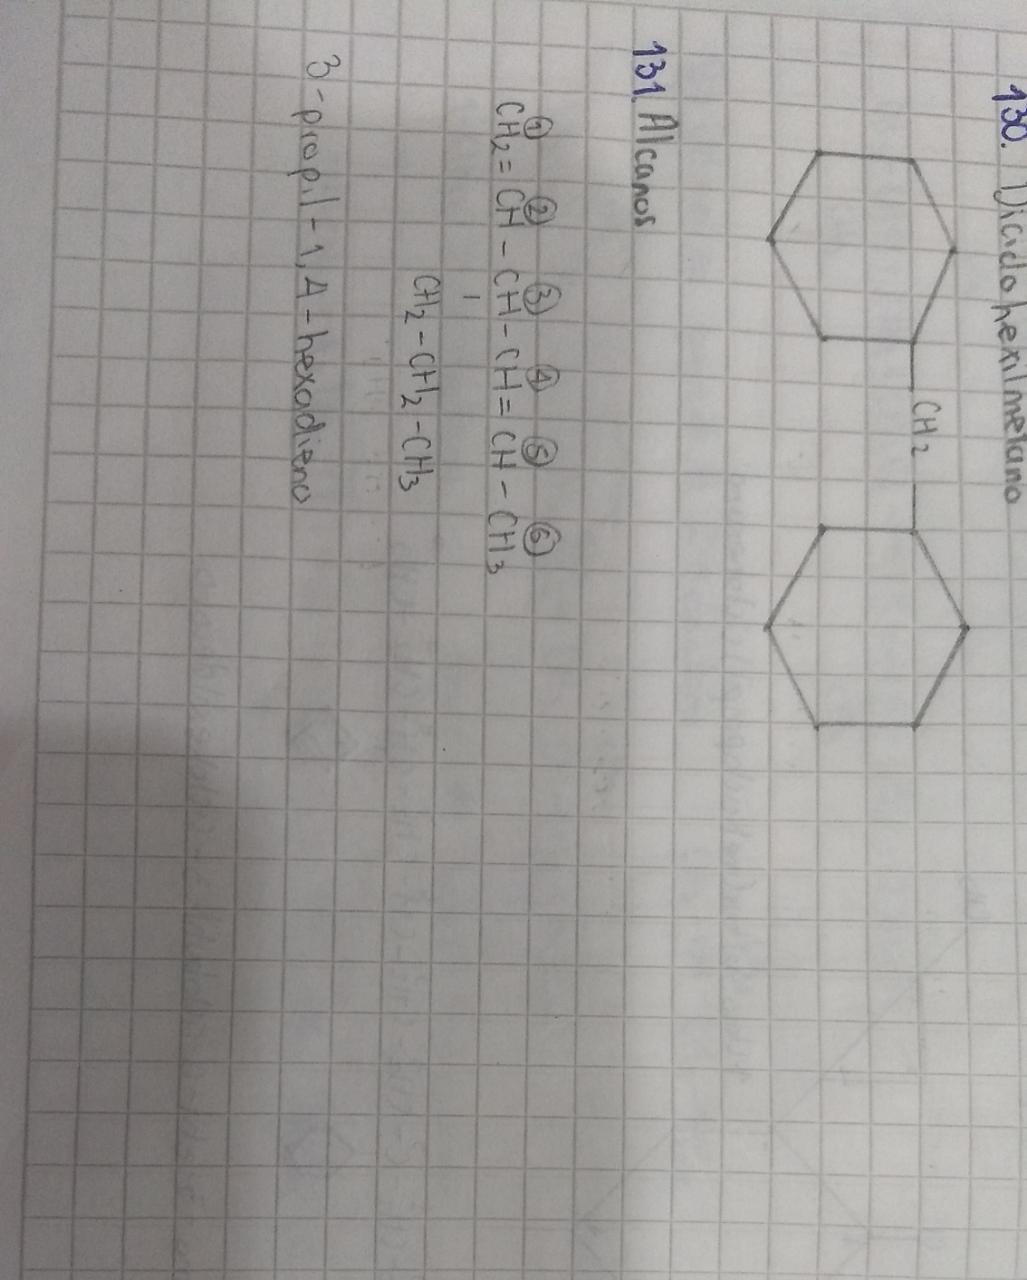 130. Diciclohexilmetano
CH2
131. Alcanos
① ② ③ ④ ⑤ ⑥
CH2 = CH - CH - CH = CH - CH3
CH2 - CH2 - CH3
3-propil-1,4-hexadieno